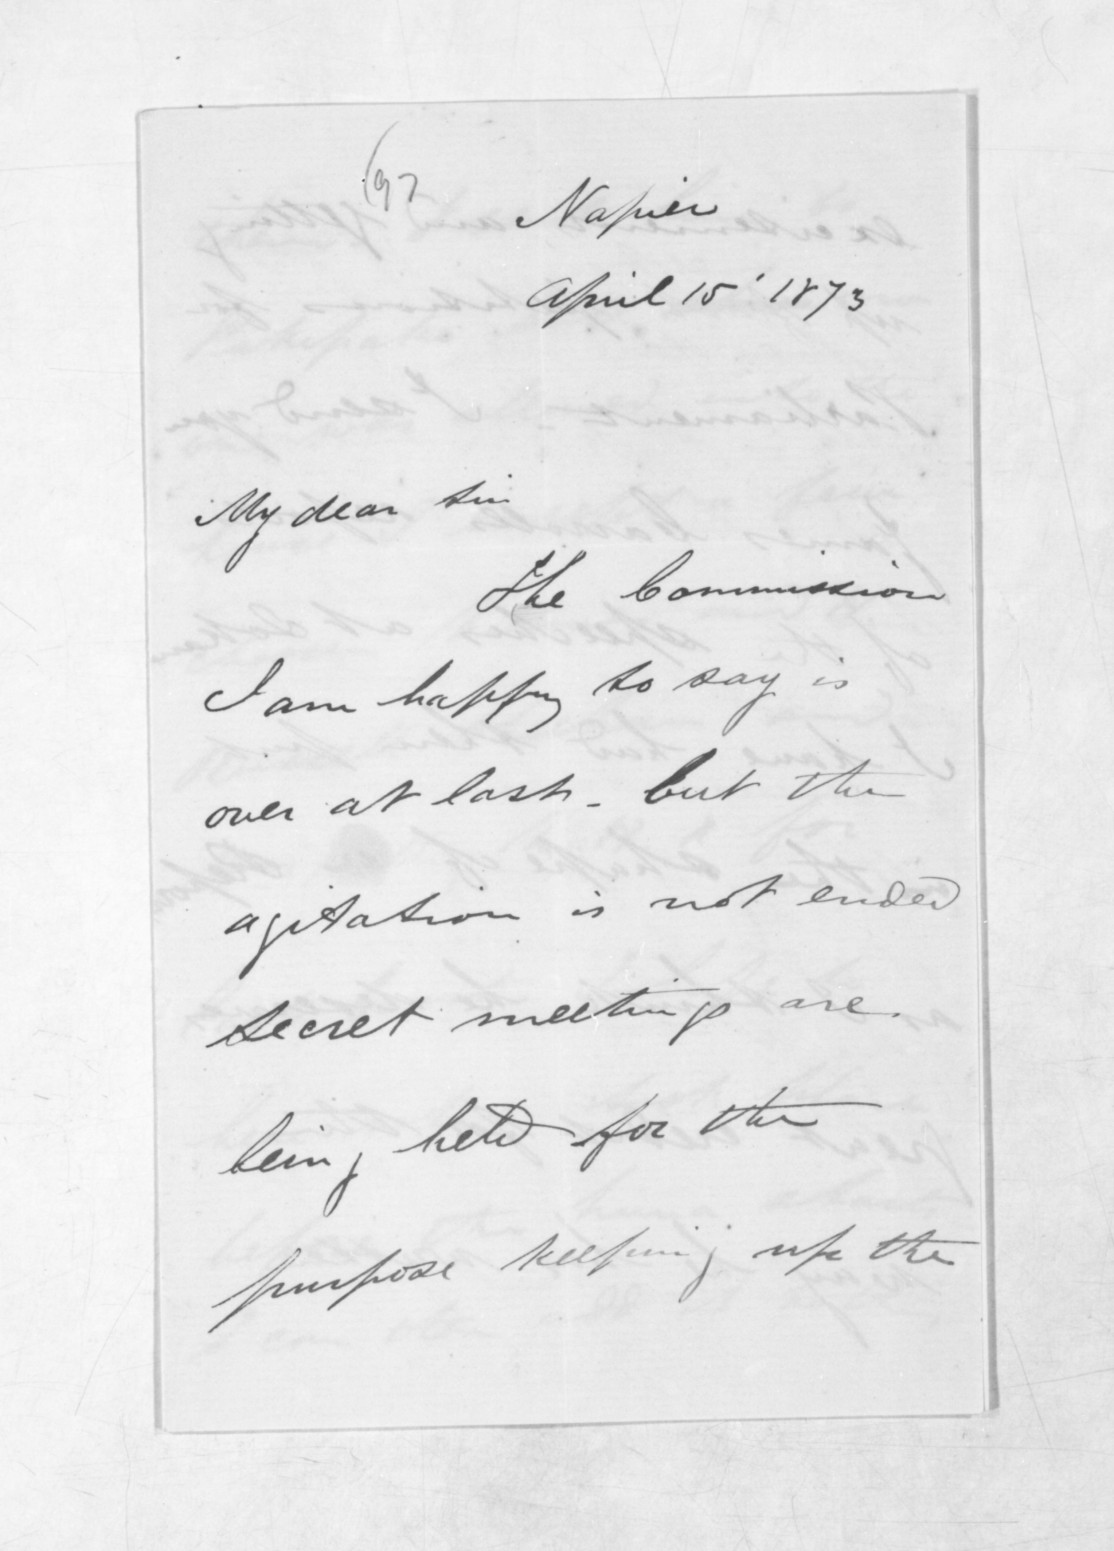 (97
Napier
April 15' 1873
My dear Sir
The Commission
I am happy to say is
over at last - but the
agitation is not ended
secret meetings are.
being held for the
purpose keeping up the